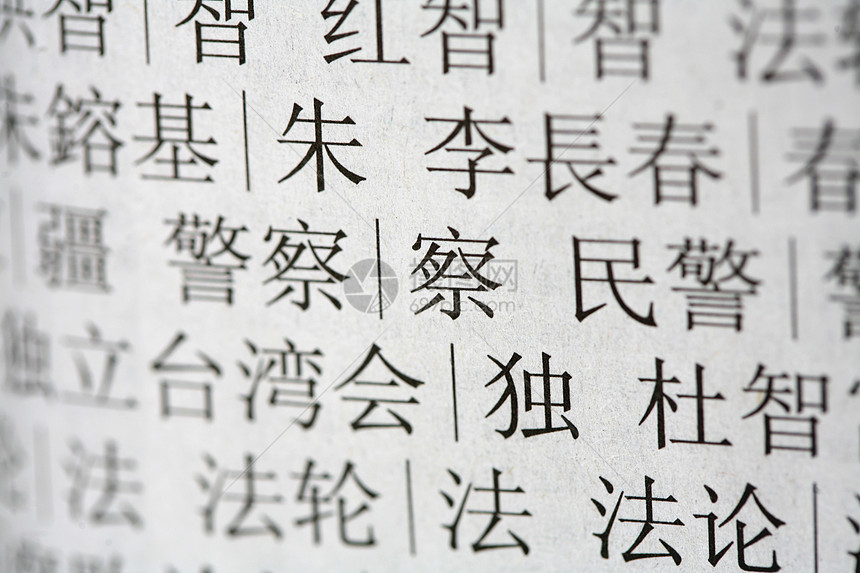 智 智 红 智 智 法
鎔 基 朱 李 長 春 春
疆 警 察 察 民 警 警
独 立 台 湾 会 独 杜 智
法 法 轮 法 法 论